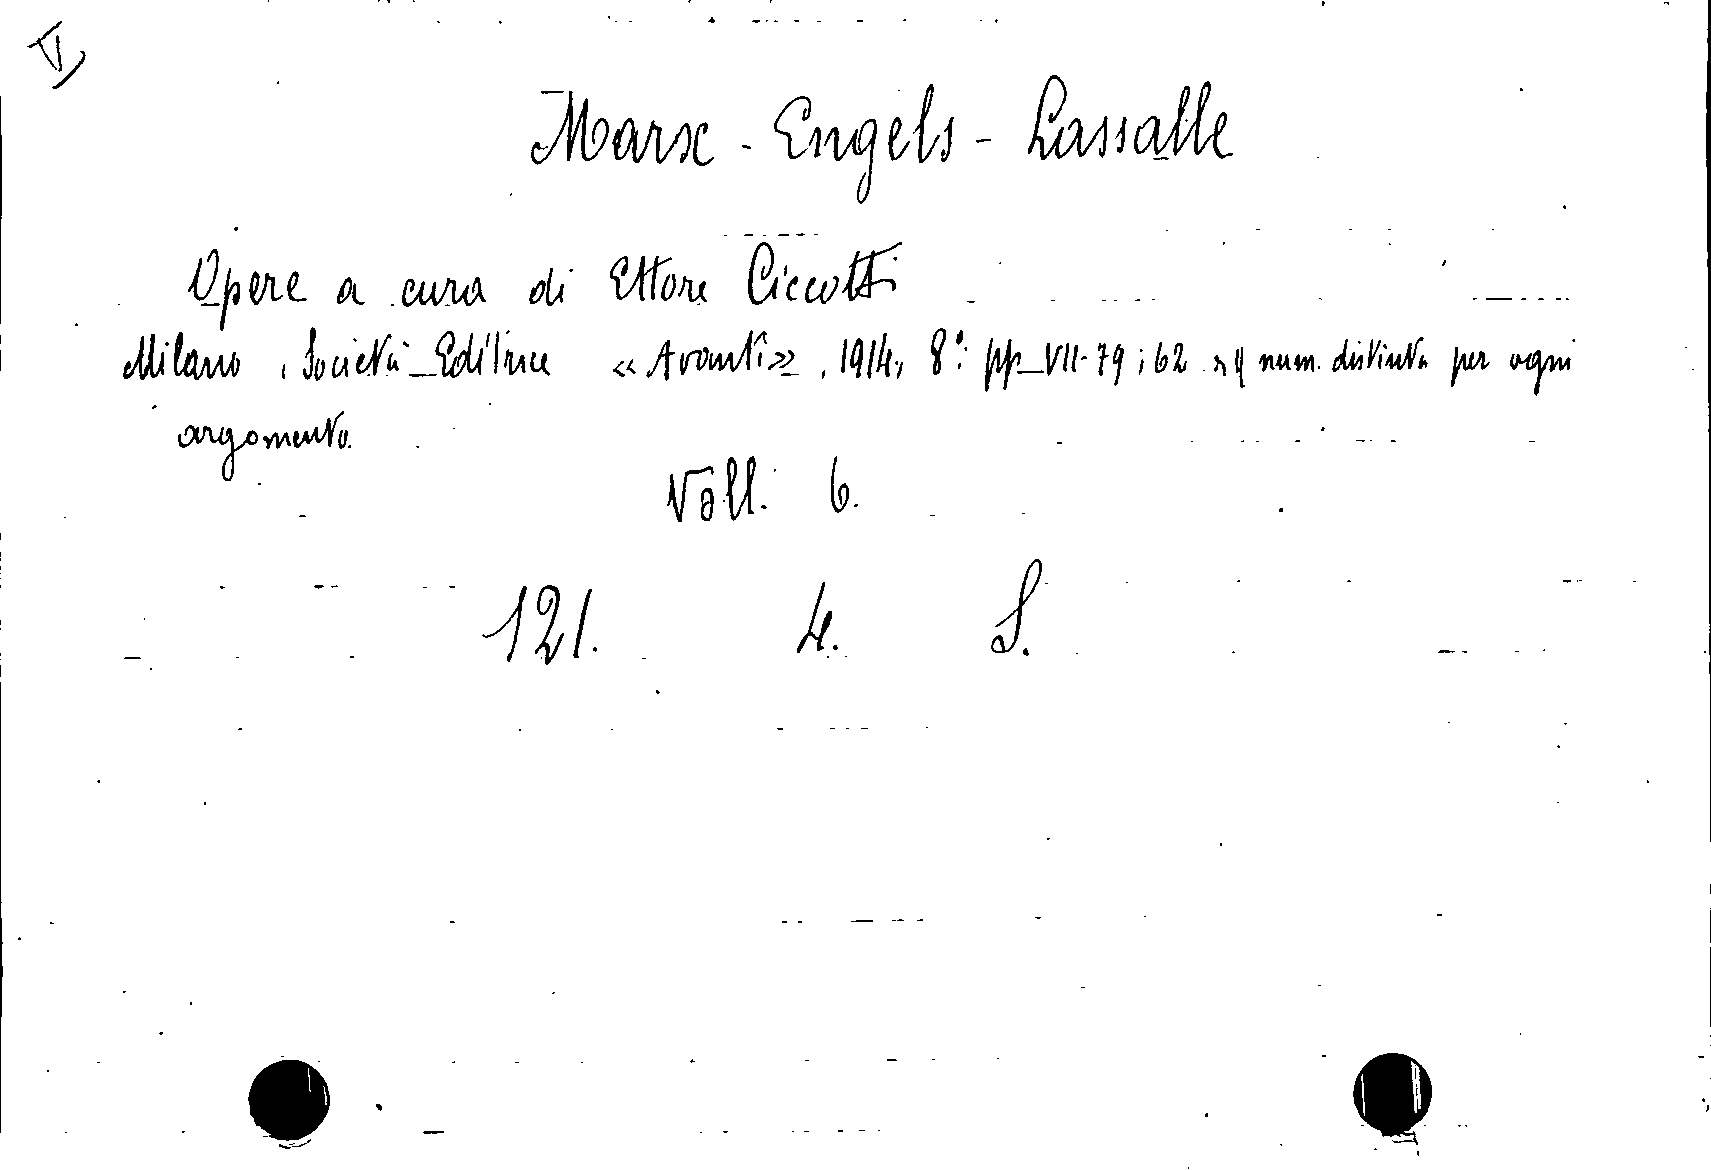 V
Marx - Engels - Lassalle
Opere a cura di Ettore Ciccotti
Milano, Società Editrice «Avanti», 1914, 8°: pp. VII-79; 62 num. distinta per ogni
argomento.
Voll. 6.
121. 4. S.